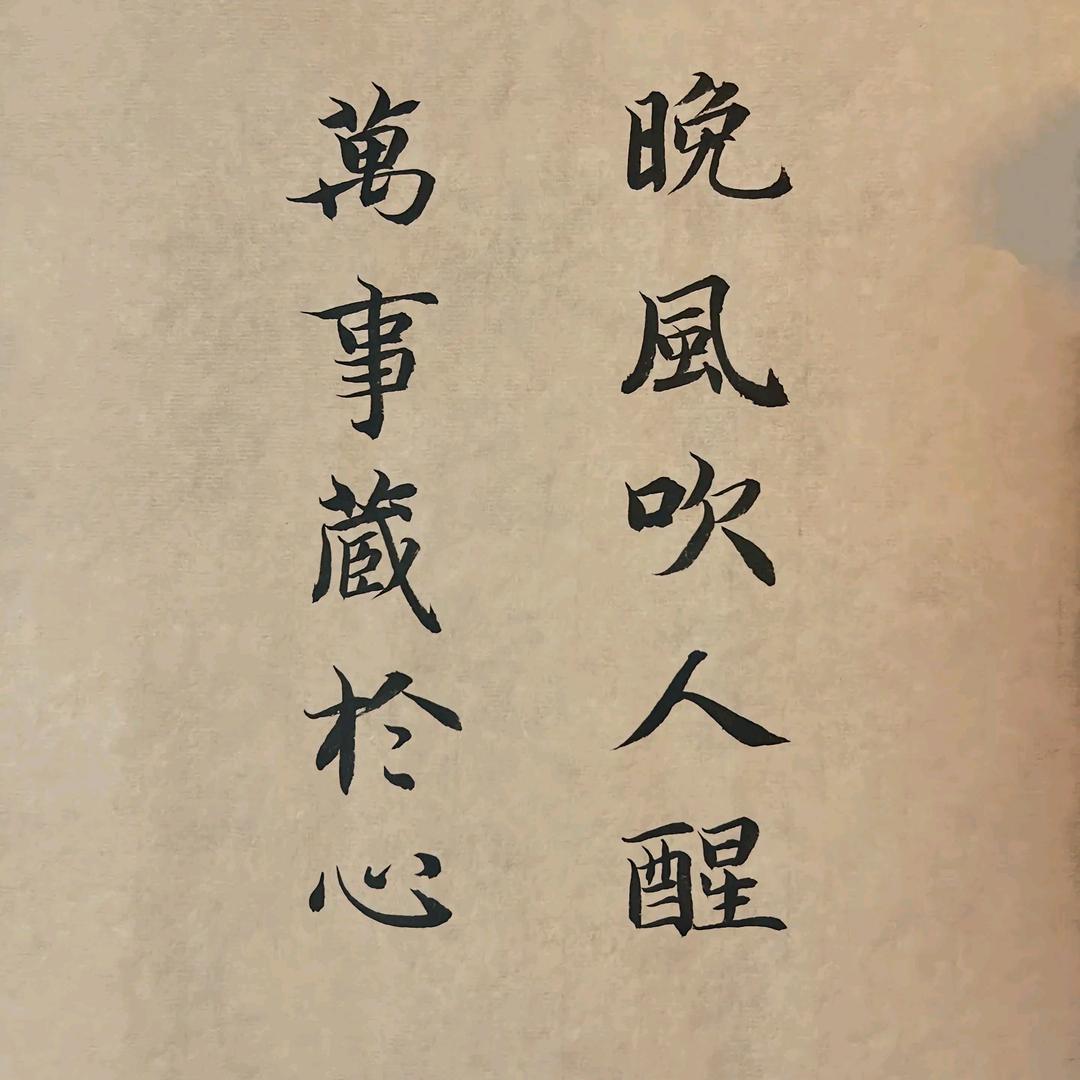 晚風吹人醒
萬事蔵於心